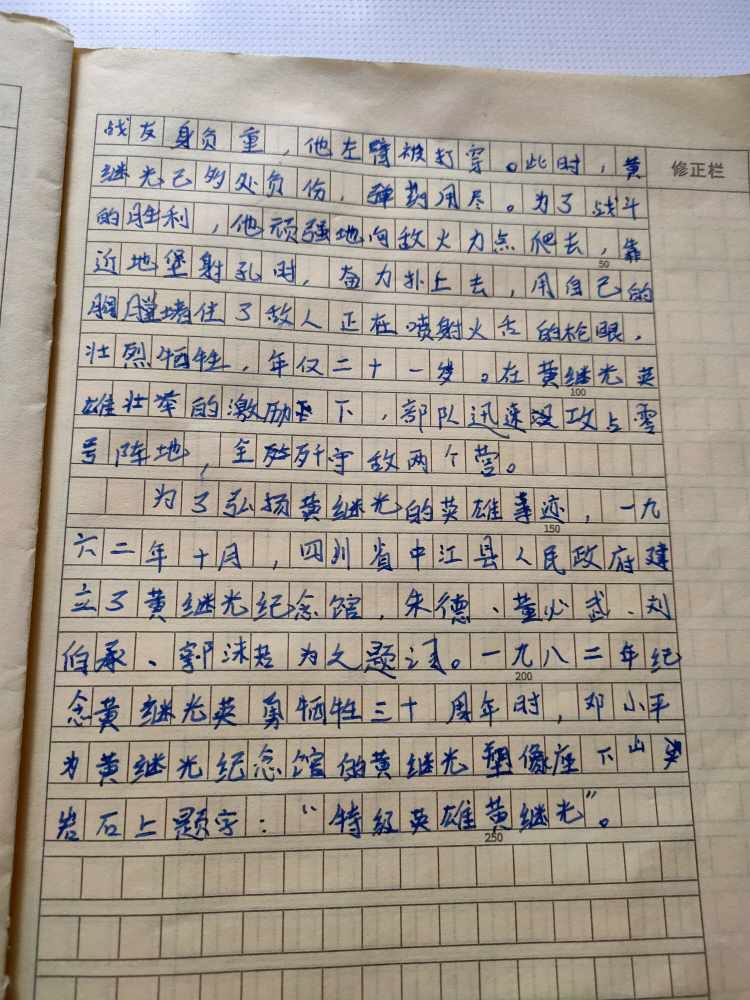 战友身负重，他左臂被打穿。此时，黄
修正栏
继光已多处负伤，弹药用尽。为了战斗
的胜利，他顽强地向敌火力点爬去，靠
50
近地堡射孔时，奋力扑上去，用自己的
胸膛堵住了敌人正在喷射火舌的枪眼，
壮烈牺牲，年仅二十一岁。在黄继光英
100
雄壮举的激励下，部队迅速攻占零
号阵地，全歼守敌两个营。
为了弘扬黄继光的英雄事迹，一九
150
六二年十月，四川省中江县人民政府建
立了黄继光纪念馆，朱德、董必武、刘
伯承、郭沫若为之题词。一九八二年纪
200
念黄继光英勇牺牲三十周年时，邓小平
为黄继光纪念馆的黄继光塑像座下山
岩石上题字：“特级英雄黄继光”。
250